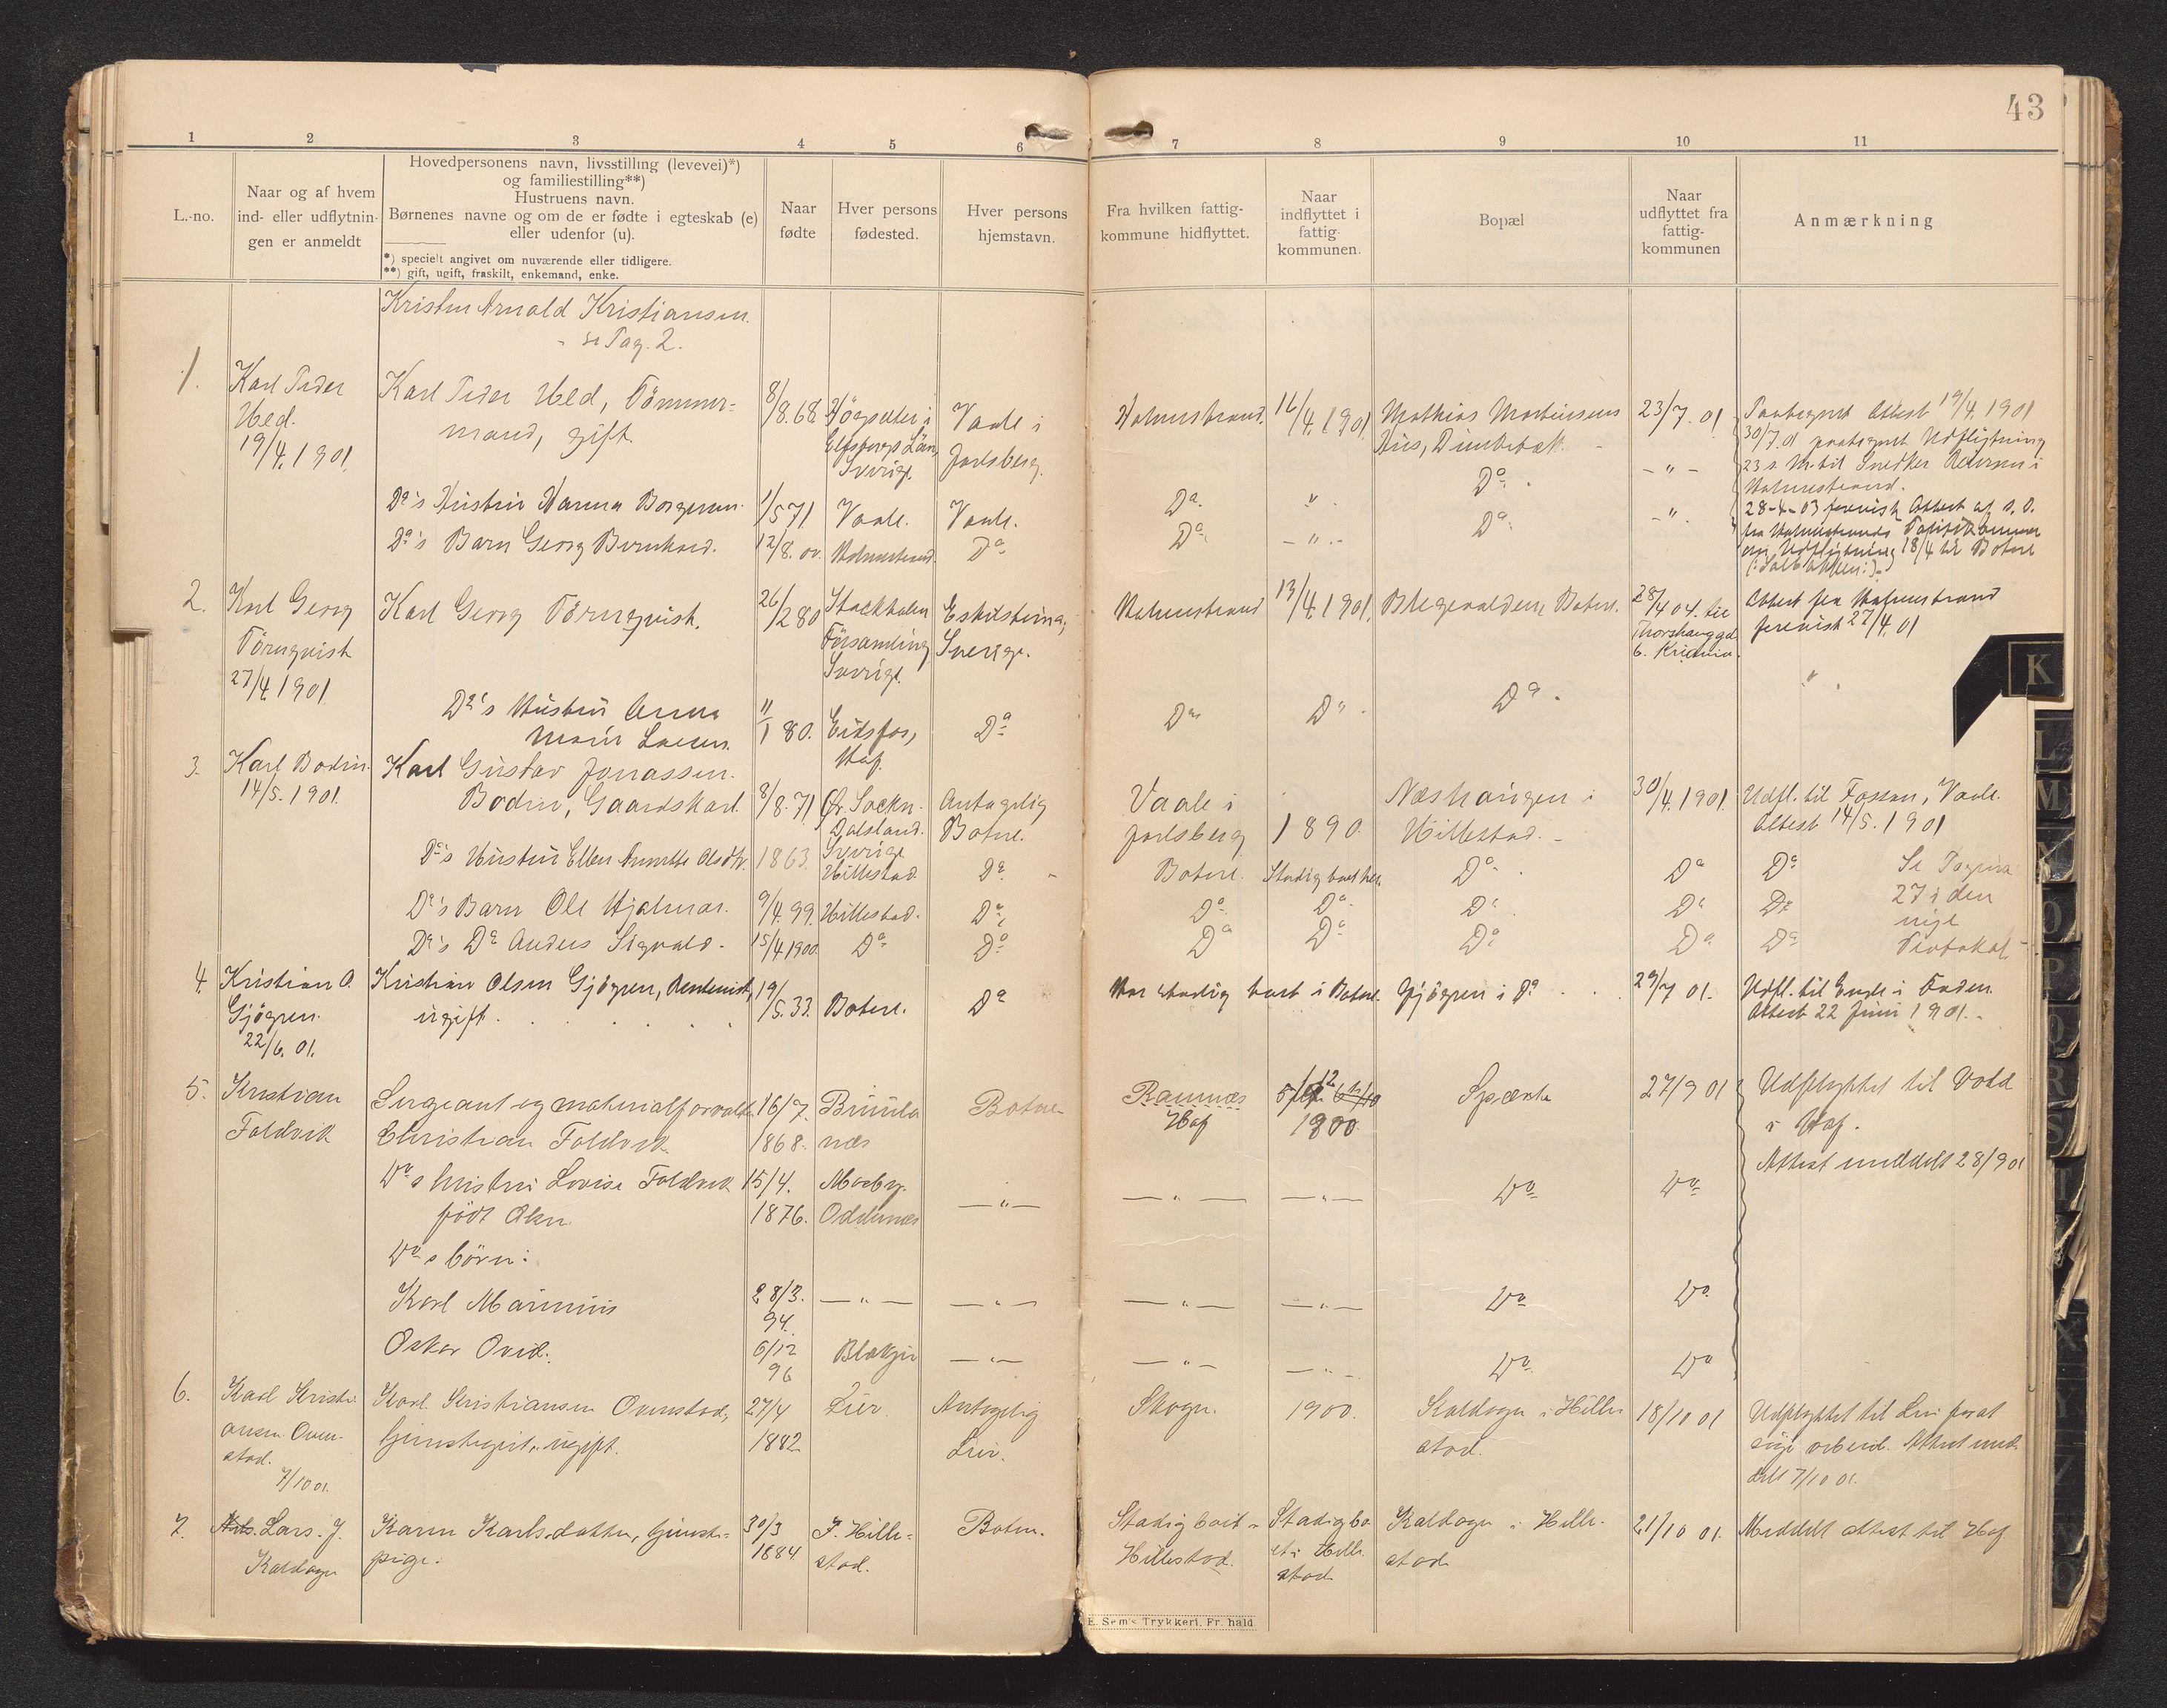 43
1 2 3 4 5 6 7 8 9 10 11
L.-no.
Naar og af hvem
ind- eller udflytnin-
gen er anmeldt
Hovedpersonens navn, livsstilling (levevei)*)
og familiestilling**)
Hustruens navn.
Børnenes navne og om de er fødte i egteskab (e)
eller udenfor (u).
*) specielt angivet om nuværende eller tidligere.
**) gift, ugift, fraskilt, enkemand, enke.
Naar
fødte
Hver persons
fødested.
Hver persons
hjemstavn.
Fra hvilken fattig-
kommune hidflyttet.
Naar
indflyttet i
fattig-
kommunen.
Bopæl
Naar
udflyttet fra
fattig-
kommunen
Anmærkning
Kristen Arnold Kristiansen.
- se Pag. 2.
1.
Karl Peder
Ued.
19/4. 1901.
Karl Peder Ued, Tömmer-
mand, gift.
8/8. 68.
Högsäter i
Elfsborgs Län,
Sverige.
Vaale i
Jarlsberg.
Holmestrand.
16/4. 1901.
Mathias Martinsens
Hus, Dunkebæk.
23/7. 01
Paategnet Attest 19/4. 1901
30/7. 01 paategnet Udflytning
23 s. M. til Snedker Petersen i
Holmestrand.
Do's Hustru Hanna Borgersen.
1/5 71
Vaale.
Vaale.
Do.
" .
Do.
— " —
28-4-03 forevist Attest af s. D.
fra Holmestrands Politikammer
om Udflytning 18/4 til Botne
(: Solbakken :).
Do's Barn Georg Bernhard.
12/8. 00.
Holmestrand.
Do
Do.
— " . —
Do.
— " .
2.
Karl Georg
Törnqvist
27/4. 1901
Karl Georg Törnqvist.
26/2 80
Stockholm
Församling
Sverige.
Eskilstuna,
Sverige.
Holmestrand
13/4. 1901.
Blegevolden, Botne.
28/4 04. til
Thorshauggd.
6. Kr.ania.
Attest fra Holmestrand
forevist 27/4. 01
Do's Hustru Anna
Marie Larsen.
11/1 80.
Eidsfos,
Hof.
Do
Do
Do .
Do .
" .
3.
Karl Bodin.
14/5. 1901.
Karl Gustav Jonassen.
Bodin, Gaardskarl.
8/8. 71
Sockn.
Dalsland.
Sverige
Antagelig
Botne.
Vaale i
Jarlsberg
1890.
Næshaugen i
Hillestad. -
30/4. 1901.
Udfl. til Fossan, Vaale.
Attest 14/5. 1901
Do's Hustru Ellen Annette Olsdtr.
1863.
Hillestad
Do -
Botne.
Stadig boet her.
Do .
Do
Do
Se Pagina
27 i den
nye
Protokol.
Do's Barn Ole Hjalmar.
9/4. 99.
Hillestad.
Do
Do
Do
Do
Do
Do
Do's Do Anders Sigvald -
15/4. 1900.
Do
Do
Do
Do
Do
Do
Do
4.
Kristian O.
Gjögren.
22/6. 01.
Kristian Olsen Gjögren, Rentenist,
ugift. . . . .
19/5. 33.
Botne.
Do
Har stadig boet i Botne.
Gjögren i Do . . .
29/7 01.
Udfl. til Engle i Foden.
Attest 22 Juni 1901.-
5.
Kristian
Foldvik
Sergeant og materialforvalter
Christian Foldvik.
16/7.
1868.
Brunla
næs
Botne
Ramnæs
Hof
1900.
Spænte
27/9 01
Udflyttet til Vold
i Hof.
Attest meddelt 28/9 01
Do s hustru Lovise Foldvik
född Aker.
15/4.
1876.
Mosby
Oddernæs
— " —
— " —
— " —
Do
Do
Do s börn:
Karl Marinius
28/3.
94.
— " —
— " —
— " —
— " —
Do
Do
Oskar Ovid.
6/12
96
Blakjer
— " —
— " —
— " —
Do.
Do
6.
Karl Kristi-
ansen Oven-
stad.
7/10 01.
Karl Kristiansen Ovenstad,
tjenstegut, ugift.
27/4
1882
Lier
Antagelig
Lier.
Skoger.
1900.
Kaldager i Hille-
stad.
18/10 01
Udflyttet til Lier for at
söge arbeid. Attest med-
delt 7/10 01.
7.
Lars. J.
Kaldager
Karen Karlsdatter, tjeneste-
pige.
30/3
1884.
I. Hille-
stad.
Botne.
Stadig boet i
Hillestad.
Stadig bo-
et i Hille-
stad
Kaldager i Hille-
stad
21/10 01.
Meddelt attest til Hof
E. Sem's Trykkeri, Fr.hald
K
L
M
N
O
P
Q
R
S
T
X
Y
Z